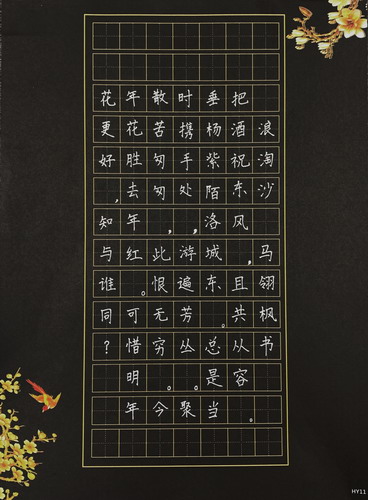 浪淘沙 马翎枫书
把酒祝东风,且共从容。
垂杨紫陌洛城东。总是当
时携手处,游遍芳丛。聚
散苦匆匆,此恨无穷。今
年花胜去年红。可惜明年
花更好,知与谁同?
HY11